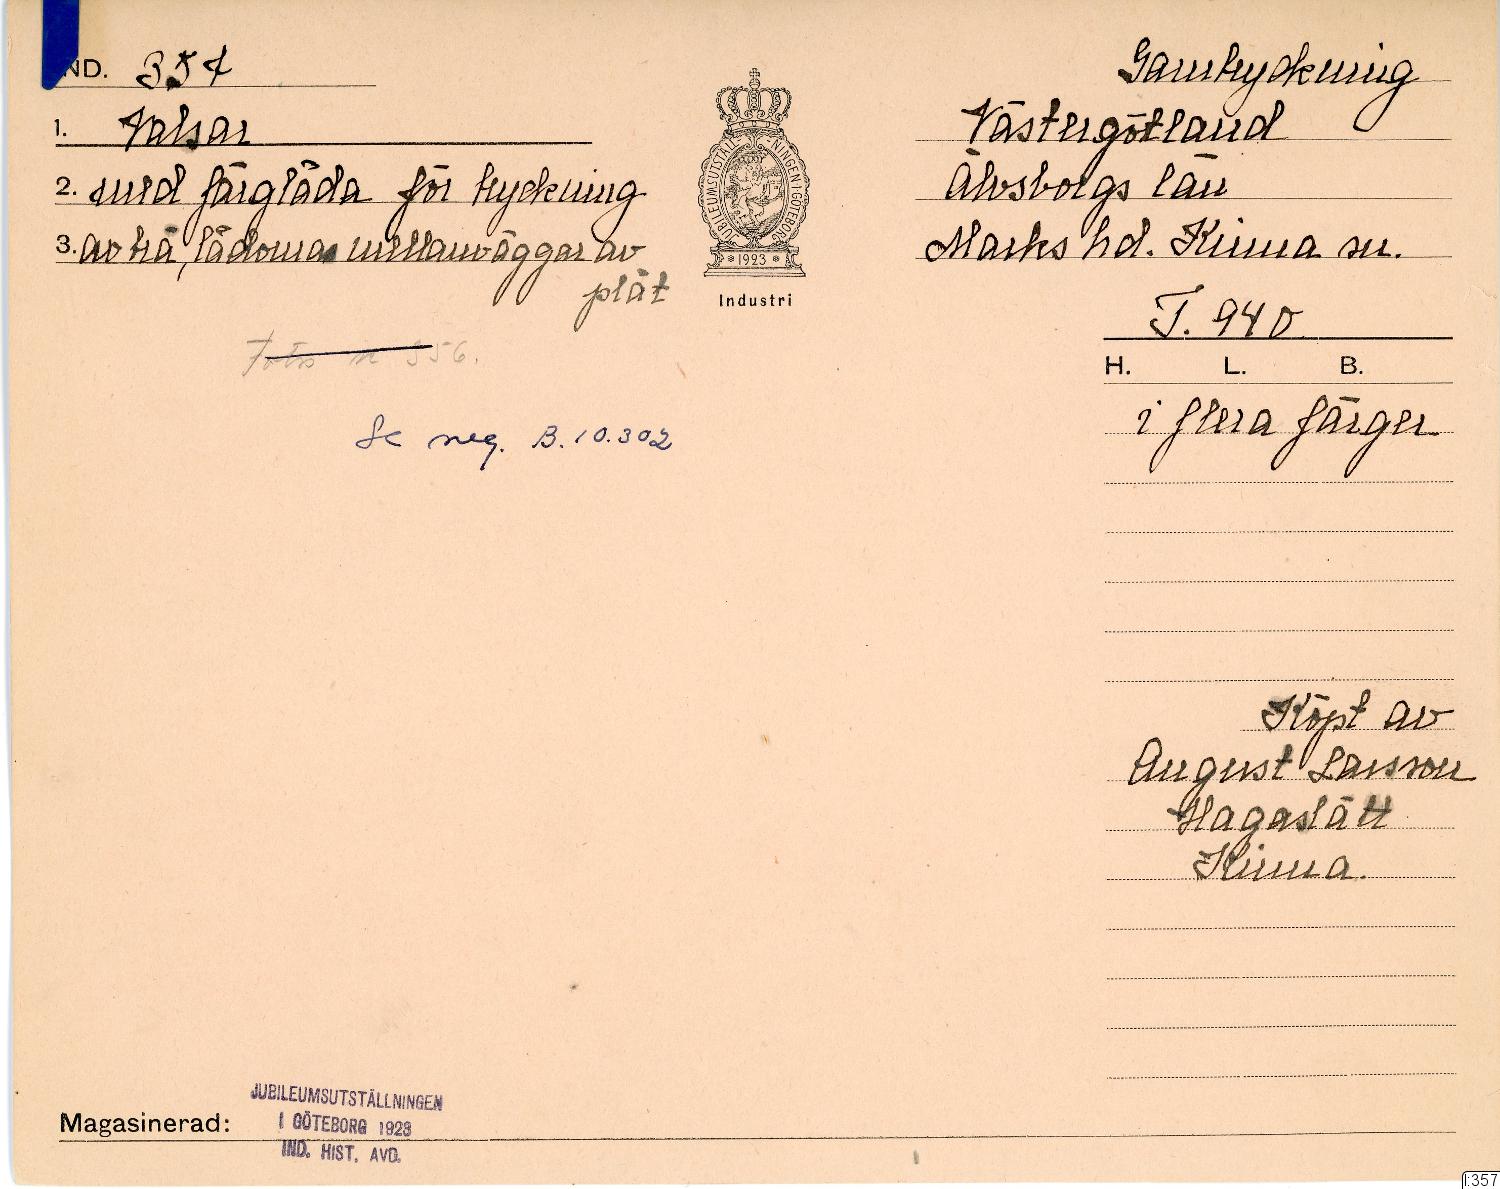 IND. 357
1. Valsar
2. med färglåda för tryckning
3. av trä, lådorna mellanväggar av
plåt
Foto n 356.
Se neg. B.10.302
JUBILEUMSUTSTÄLLNINGEN I GÖTEBORG
* 1923 *
Industri
Garntryckning
Västergötland
Älvsborgs län
Marks hd. Kinna sn.
T. 940
H. L. B.
i flera färger
Köpt av
August Larsson
Hagaslätt
Kinna.
Magasinerad:
JUBILEUMSUTSTÄLLNINGEN
I GÖTEBORG 1923
IND. HIST. AVD.
I:357